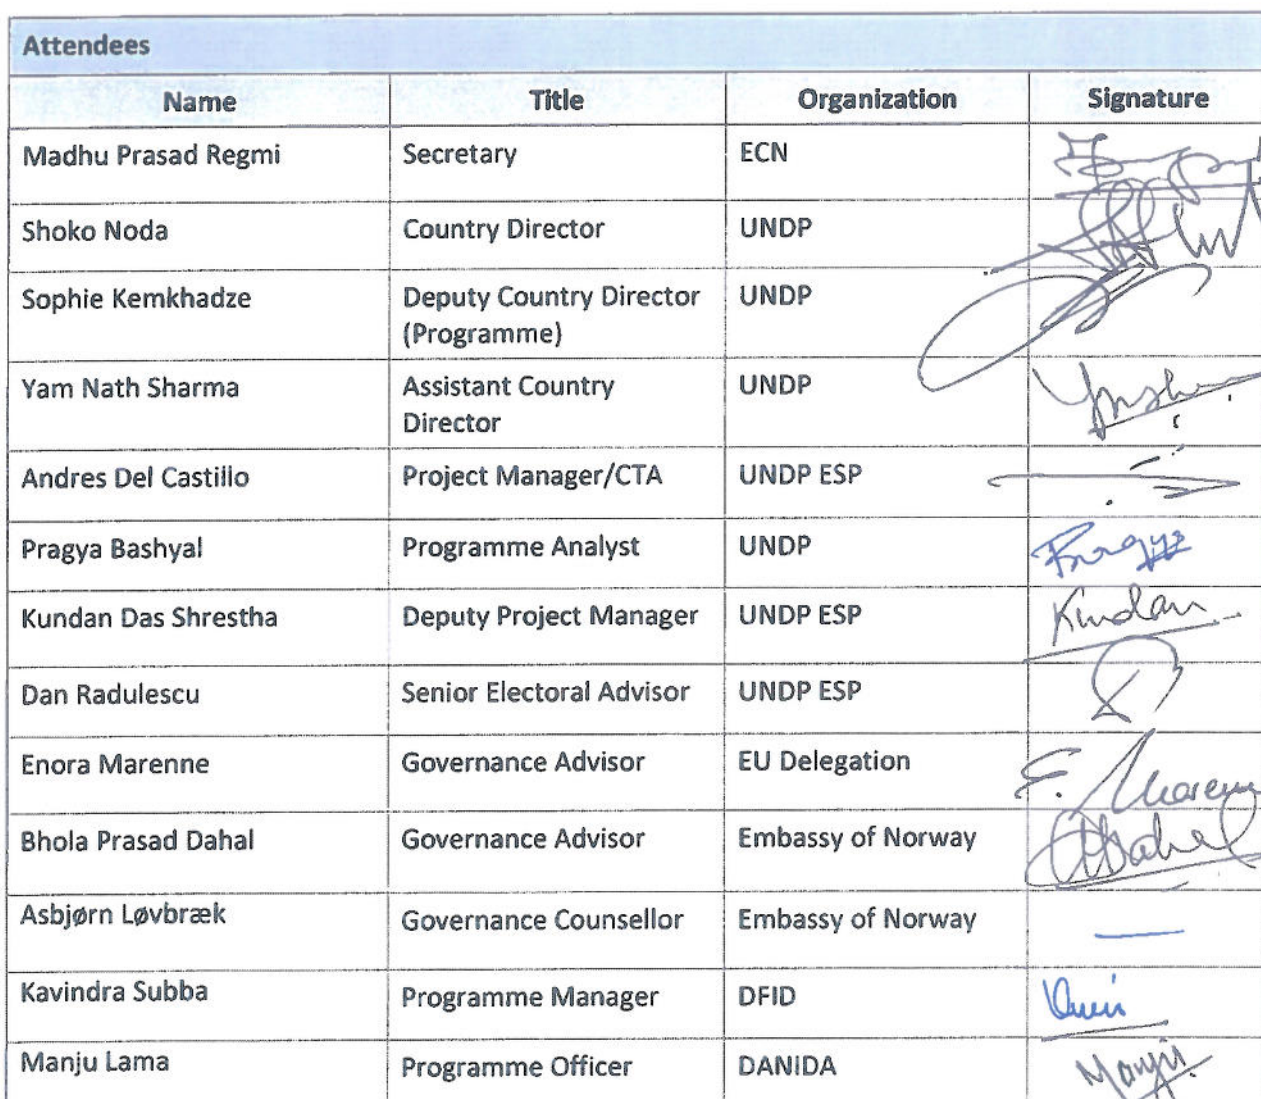 Attendees
Name Title Organization Signature
Madhu Prasad Regmi Secretary ECN
Shoko Noda Country Director UNDP
Sophie Kemkhadze Deputy Country Director UNDP
(Programme)
Yam Nath Sharma Assistant Country UNDP
Director
Andres Del Castillo Project Manager/CTA UNDP ESP
Pragya Bashyal Programme Analyst UNDP Pragya
Kundan Das Shrestha Deputy Project Manager UNDP ESP Kundan
Dan Radulescu Senior Electoral Advisor UNDP ESP
Enora Marenne Governance Advisor EU Delegation
Bhola Prasad Dahal Governance Advisor Embassy of Norway
Asbjørn Løvbræk Governance Counsellor Embassy of Norway
Kavindra Subba Programme Manager DFID
Manju Lama Programme Officer DANIDA Manju